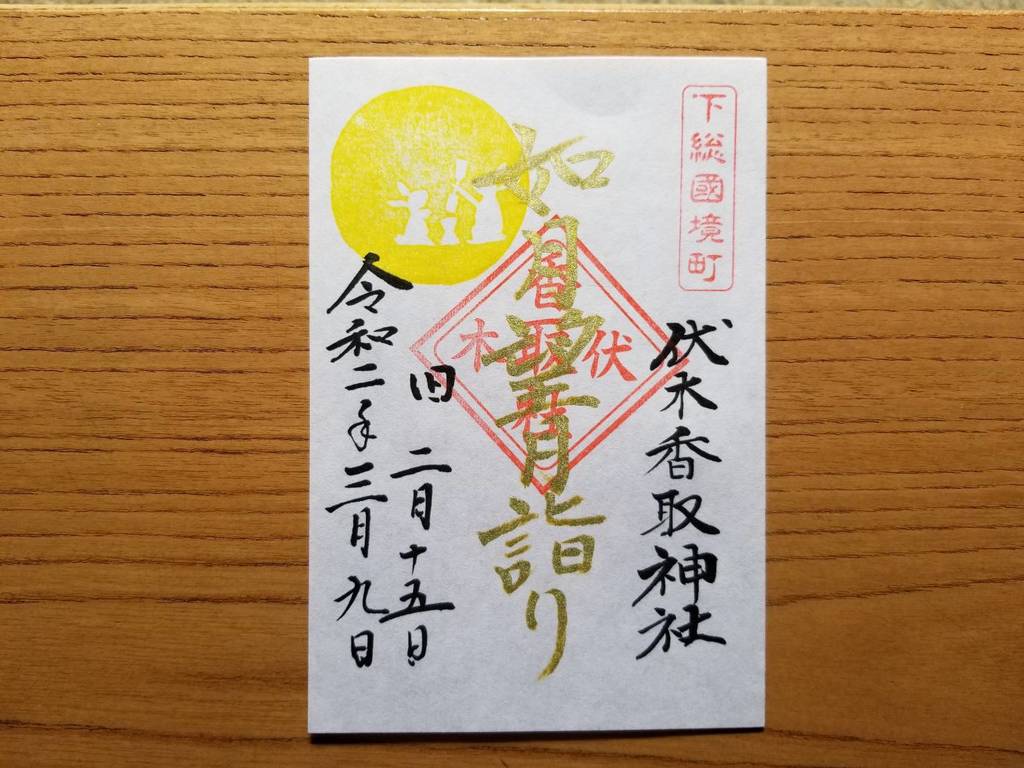 下総國境町
伏木香取神社
如月望月詣り
伏木
香取
社
旧 二月十五日
令和二年三月九日